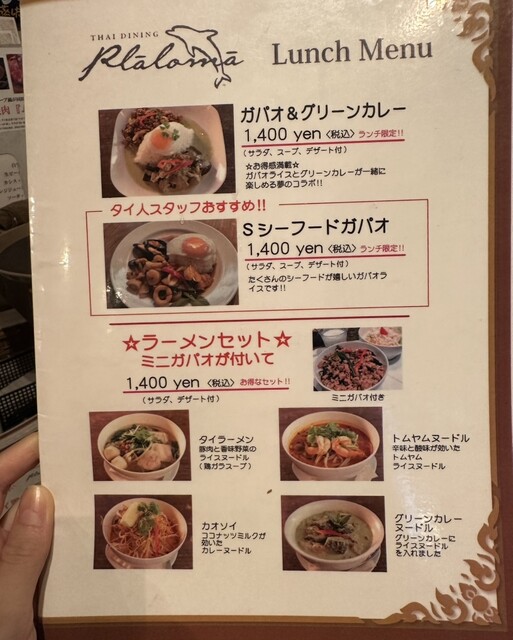 THAI DINING
Plāloma
Lunch Menu
ガパオ&グリーンカレー
1,400 yen〈税込〉ランチ限定!!
(サラダ、スープ、デザート付)
☆お得感満載☆
ガパオライスとグリーンカレーが一緒に
楽しめる夢のコラボ!!
タイ人スタッフおすすめ!!
Sシーフードガパオ
1,400 yen〈税込〉ランチ限定!!
(サラダ、スープ、デザート付)
たくさんのシーフードが嬉しいガパオラ
イスです!!
☆ラーメンセット☆
ミニガパオが付いて
1,400 yen〈税込〉お得なセット!!
(サラダ、デザート付)
ミニガパオ付き
タイラーメン
豚肉と香味野菜の
ライスヌードル
(鶏ガラスープ)
トムヤムヌードル
辛味と酸味が効いた
トムヤム
ライスヌードル
カオソイ
ココナッツミルクが
効いた
カレーヌードル
グリーンカレー
ヌードル
グリーンカレーに
ライスヌードル
を入れました